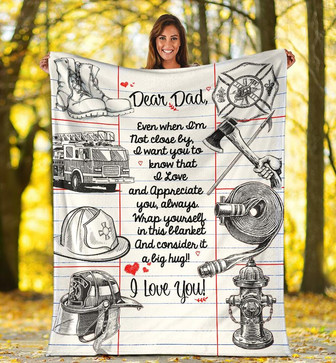 Dear Dad,
Even when I'm
Not close by,
I want you to
know that
I Love
and Appreciate
you, always.
Wrap yourself
in this blanket
And consider it
a big hug!!
I Love You!